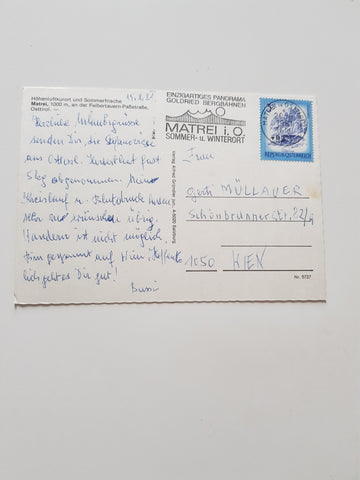 Höhenluftkurort und Sommerfrische
Matrei, 1000 m, an der Felbertauern-Paßstraße,
Osttirol. —
Herzliche Urlaubsgrüsse
senden Dir, die
aus Osttirol. fast
5 kg abgenommen. Meine
Kreislauf u. Blutdruck lassen
sehr zu wünschen übrig.
Wandern ist nicht möglich.
Bin gespannt auf Wien. Hoffent-
lich geht es Dir gut!
Bussi
EINZIGARTIGES PANORAMA
GOLDRIED BERGBAHNEN
MATREI i.O.
SOMMER- u. WINTERORT
REPUBLIK ÖSTERREICH
Verlag Alfred Gründler jun. A-5020 Salzburg
Frau
Gerti MÜLLAUER
Schönbrunnerstr. 22/9
1050 WIEN
Nr. 5727